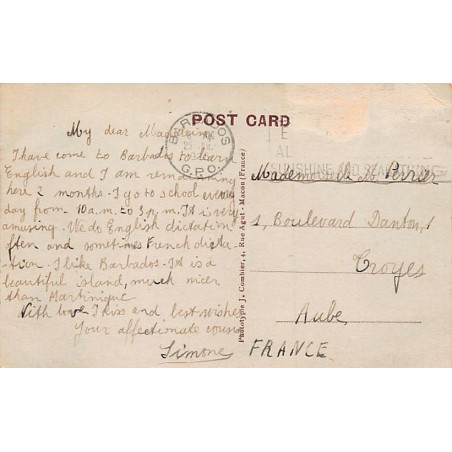 POST CARD
BARBADOS
G.P.O.
SUNSHINE AND SEA BATHING
My dear Magdeleine
I have come to Barbados to learn
English and I am remaining
here 2 months. I go to school every
day from 10 a.m. to 3 p.m. It is very
amusing. We do English dictation
often and sometimes French dicta-
tion. I like Barbados. It is a
beautiful island, much nicer
than Martinique
With love I kiss and best wishes
Your affectionate cousin
Simone
Phototypie J. Combier, 4, Rue Agut - Macon (France)
Mademoiselle M. Perrier
1, Boulevard Danton, 1
Troyes
Aube
FRANCE